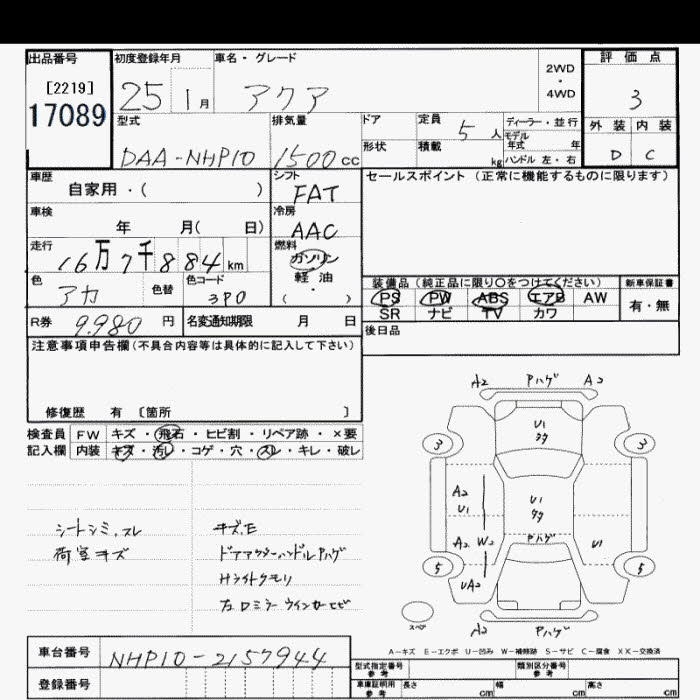 出品番号 初度登録年月 車名・グレード 評価点
[2219] 2WD
25 1月 アクア ・ 3
17089 4WD
型式 排気量 ドア 定員 5人 ディーラー・並行 外装 内装
モデル年式 年
DAA-NHP10 1500cc 形状 積載 kg ハンドル 左・右 D C
車歴 シフト セールスポイント(正常に機能するものに限ります)
自家用・( ) FAT
車検 冷房
年 月( 日) AAC
走行 燃料
16万7千884km ガソリン
色 色替 色コード 軽油 装備品(純正品に限り○をつけてください) 新車保証書
アカ 3P0 ( ) PS PW ABS エアB AW 有・無
SR ナビ TV カワ
R券 9.980円 名変通知期限 月 日 後日品
注意事項申告欄(不具合内容等は具体的に記入して下さい)
修復歴 有 [箇所 ]
検査員 FW キズ・飛石・ヒビ割・リペア跡・×要
記入欄 内装 キズ・汚レ・コゲ・穴・スレ・キレ・破レ
シートシミ.スレ キズ.E
荷室キズ ドアアウターハンドルPハゲ
Hライトクモリ
左ロミラーウインカーヒビ
A2 Pハゲ A2
U1
タタ
3 3
A2
U1
U1
タタ
A2 W2 Pハゲ U1
5 5
UA2
スペア
A2 Pハゲ
A-キズ E-エクボ U-凹み W-補修跡 S-サビ C-腐食 XX-交換済
車台番号 NHP10-2157944
型式指定番号 参考 類別区分番号 参考
登録番号
車庫証明用 参考 長さ cm 幅 cm 高さ cm